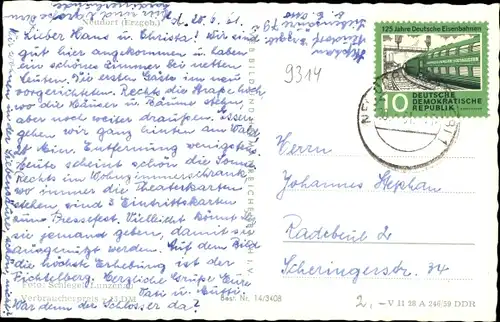 Neudorf (Erzgeb.)
d. 20.6.61.
Lieber Hans u. Christa! Wir sind
gut hier angekommen u. haben
ein schönes Zimmer bei netten
Leuten. Die ersten Gäste im neu
vorgerichteten. Rechts die Straße hoch
wo die Häuser u. Bäume stehen,
aber noch weiter draußen. Essen
gehen wir ganz hinten am Wald
20 Min. Entfernung wenigstens
heute scheint schön die Sonne
Rechts im Wohnzimmerschrank
wo immer die Theaterkarten
stehen sind 3 Eintrittskarten
zum Pressefest. Vielleicht könnt Ihr
sie jemand geben, damit sie
ausgenützt werden. Auf dem Bild
die höchste Erhebung ist der
Fichtelberg. Herzliche Grüße Eure
Vati u. Mutti.
War denn der Schlosser da?
Foto: Schlegel, Lunzenau
Verbrauchespreis DM
Best. Nr. 14/3408
BILD UND HEIMAT REICHENBACH I. V.
9314
125 Jahre Deutsche Eisenbahnen
10
DEUTSCHE
DEMOKRATISCHE
REPUBLIK
Herrn
Johannes Stephan
Radebeul 2
Scheringerstr. 34
2,- V 11 28 A 246/59 DDR